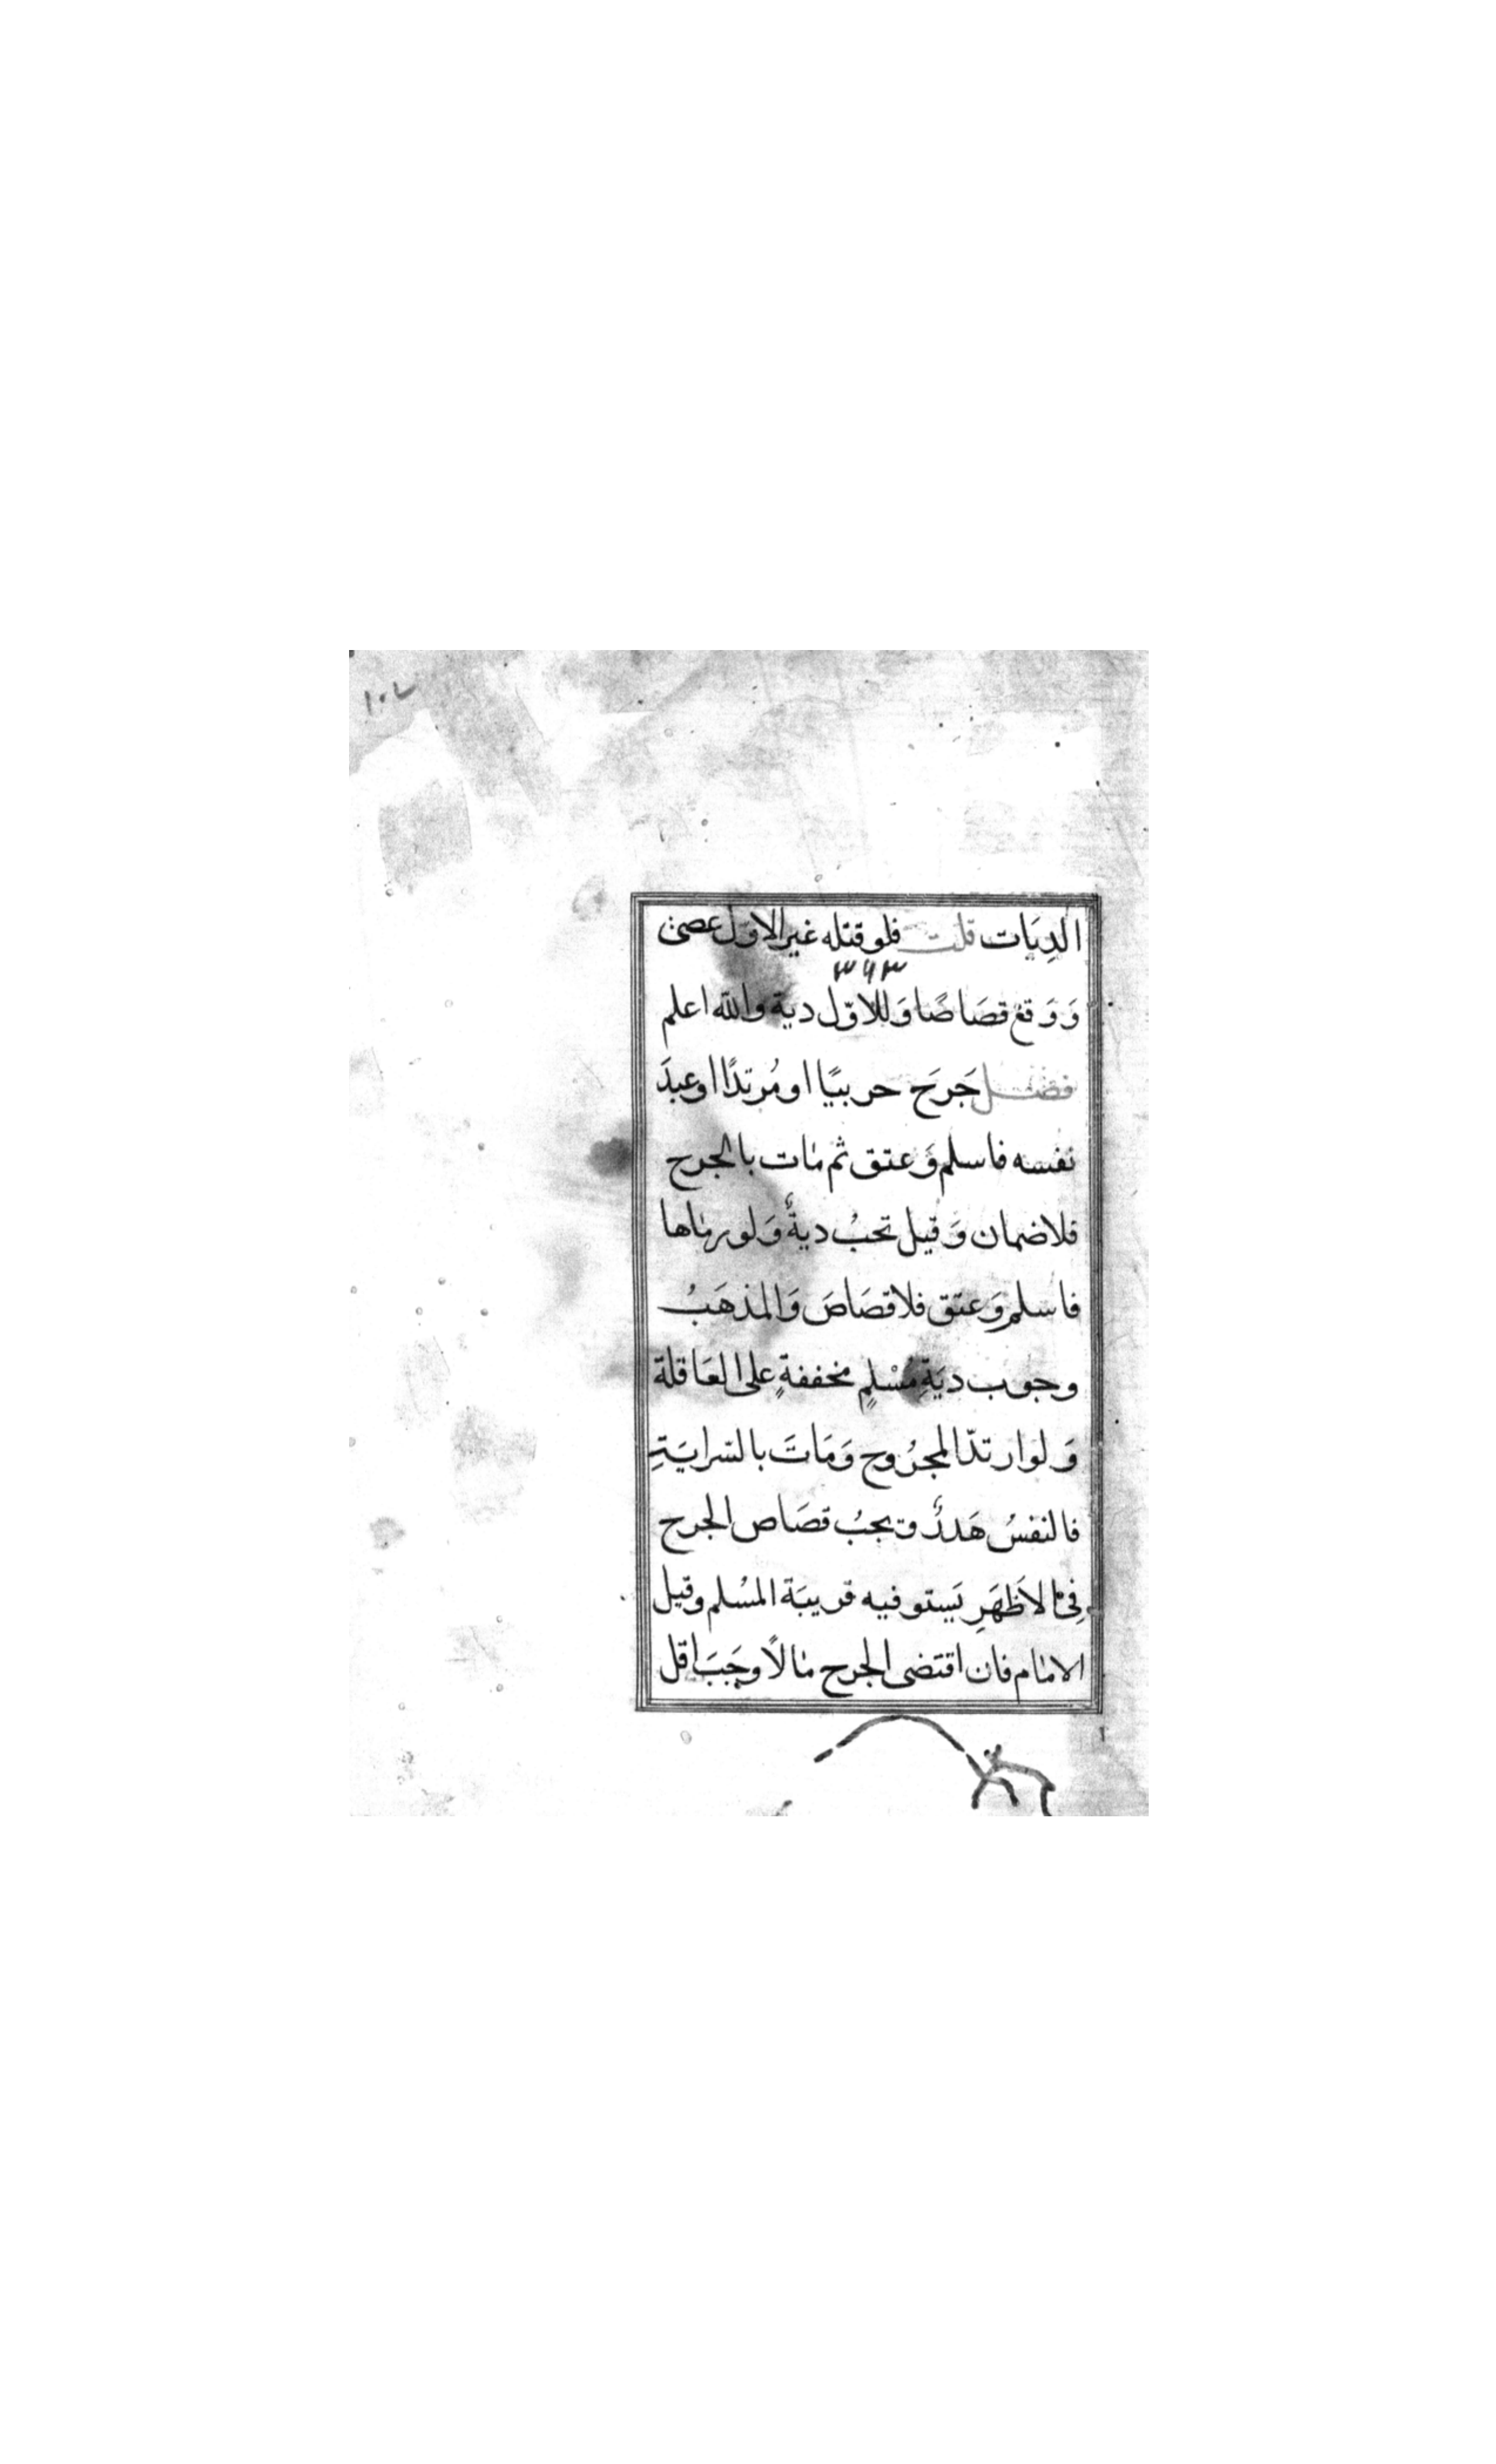 ١٠٢
الدِيَات قلت فلو قتله غير الاوّل عصى
٣٦٣
وَوَقع قصَاصًا وَللاوّل دية والله اعلم
فصل جَرحَ حربيًا او مُرتدًا او عبدَ
نفسه فاسلم وَعتق ثم مات بالجرح
فلا ضمان وَقيل تجبُ ديةٌ وَلو رماها
فاسلم وَعتق فلا قصَاصَ وَالمذهَبُ
وجوب ديَةِ مُسْلمٍ مخففةٍ على العَاقلة
وَلوارتدّ المجرُوح وَمَاتَ بالسّرايَةِ
فالنفسُ هَدرٌ ويجبُ قصَاص الجرح
فِى الاَظهَرِ يَستوفيه قريبَة المسُلم وقيل
الامام فان اقتضى الجرح مالاً وجَبَ اقل